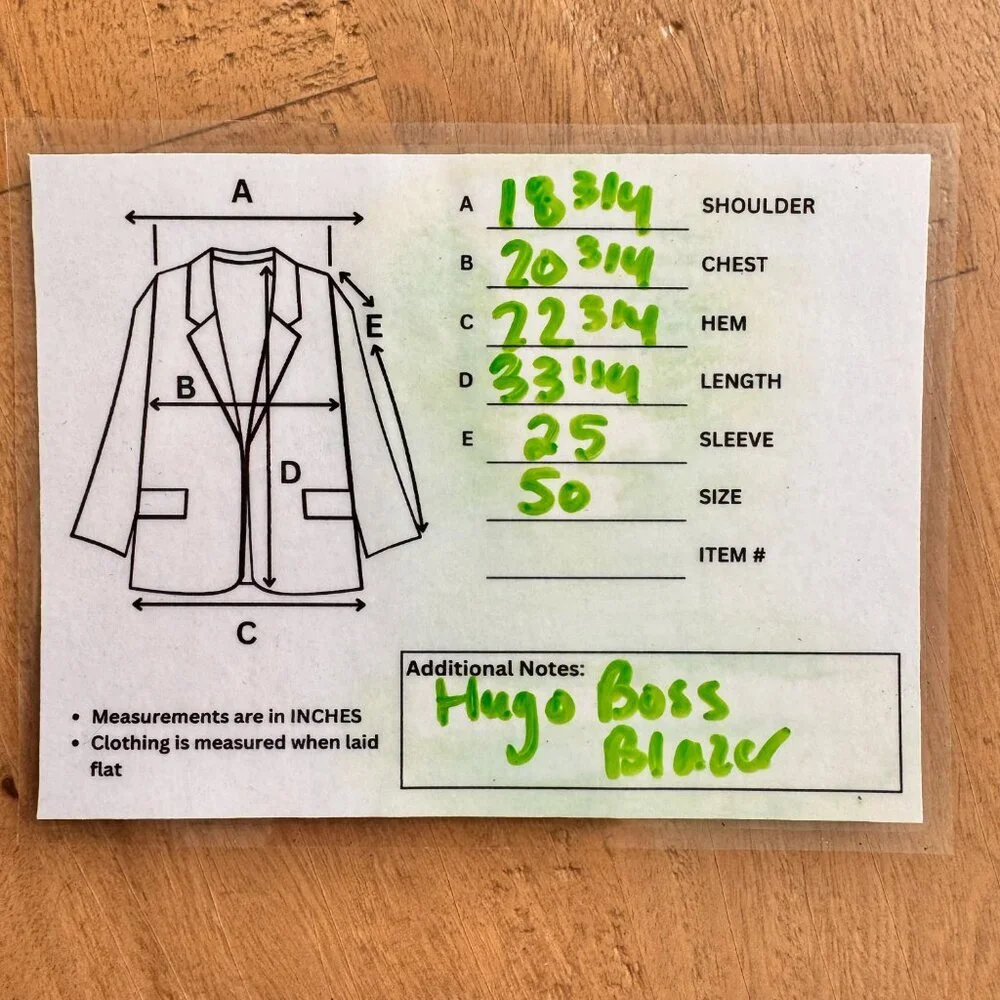 A
E
B
D
C
A 18 3/4 SHOULDER
B 20 3/4 CHEST
C 22 3/4 HEM
D 33 1/4 LENGTH
E 25 SLEEVE
50 SIZE
ITEM #
Additional Notes:
Hugo Boss
Blazer
• Measurements are in INCHES
• Clothing is measured when laid
flat